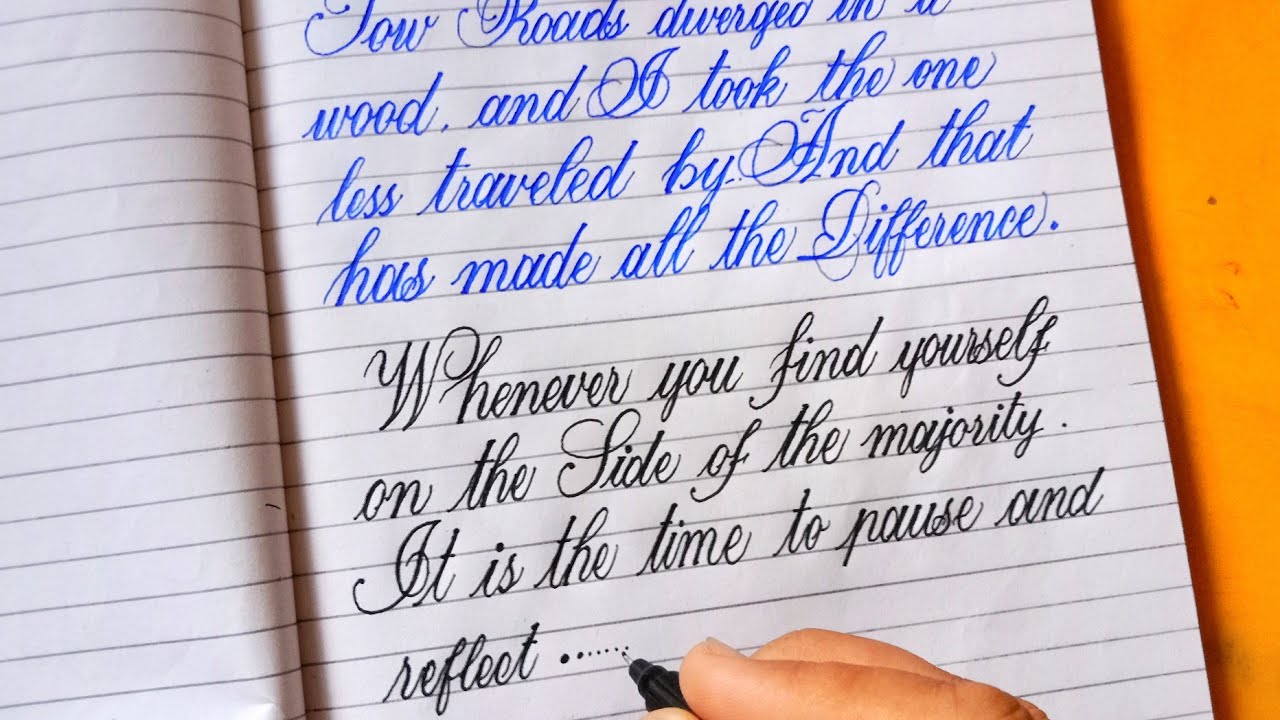 Tow Roads diverged in a
wood. and I took the one
less traveled by. And that
has made all the Difference.
Whenever you find yourself
on the Side of the majority.
It is the time to pause and
reflect .......